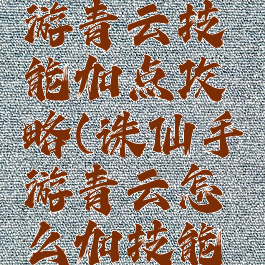 游青云技
能加点攻
略(诛仙手
游青云怎
么加技能